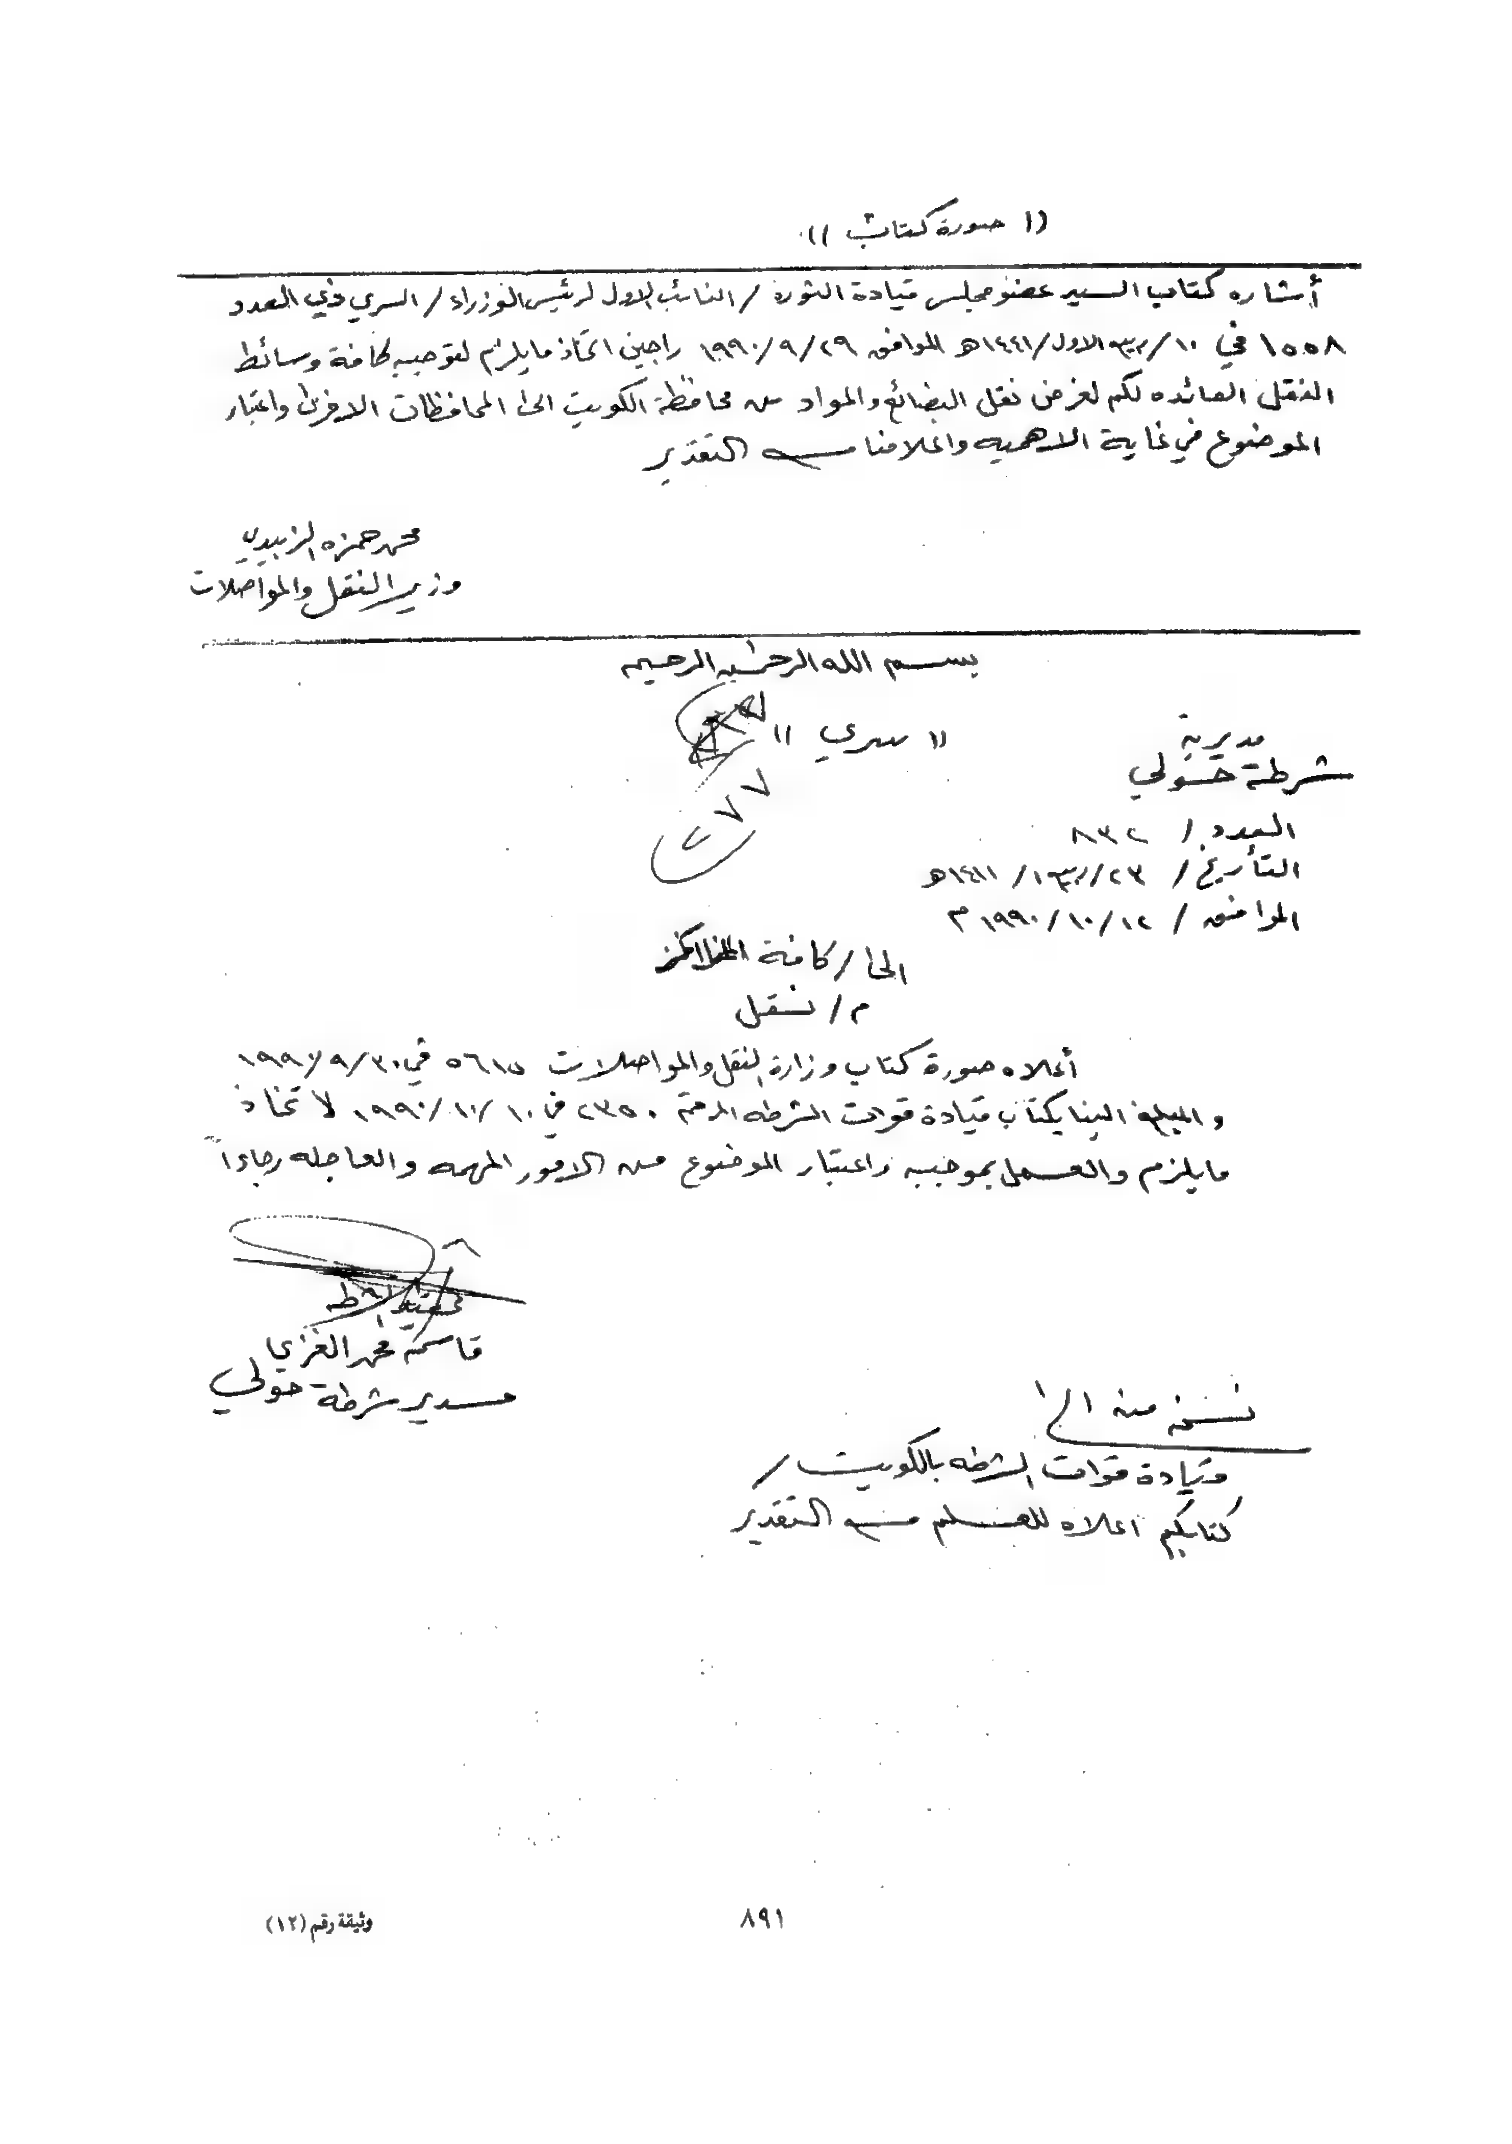 (( صورة كتاب ))
أشاره كتاب السيد عضو مجلس قيادة الثورة / النائب الاول لرئيس الوزراء / السري ذي العدد
١٥٥٨ في ١٠/ربيع الاول/١٤٤١هـ الموافق ٢٩/٩/١٩٩٠ راجين اتخاذ مايلزم لتوجيه كافة وسائط
النقل العائده لكم لغرض نقل البضائع والمواد من محافظة الكويت الى المحافظات الاخرى واعتبار
الموضوع في غاية الاهميه واعلامنا مع التقدير
محمد حمزه الزبيدي
وزير النقل والمواصلات
بسم الله الرحمن الرحيم
(( سري ))
مديرية
شرطة حولي
العدد / ٨٣٢
التأريخ / ٢٣/ربيع١/١٤١١هـ
الموافق / ١٢/١٠/١٩٩٠م
٧٧
الى / كافة المراكز
م / نقل
أعلاه صورة كتاب وزارة النقل والمواصلات ٥٦١٥ في ٣٠/٩/١٩٩٠
والمبلغ الينا بكتاب قيادة قوات الشرطه المرقم ٢٣٥٠ في ١٠/١٠/١٩٩٠ لاتخاذ
مايلزم والعمل بموجبه واعتبار الموضوع من الامور المهمه والعاجله رجاءاً
عقيد الشرطه
قاسم محمد الغزي
مدير شرطة حولي
نسخه منه الى /
قيادة قوات الشرطه بالكويت /
كتابكم اعلاه للعلم مع التقدير
٨٩١
وثيقة رقم (١٢)